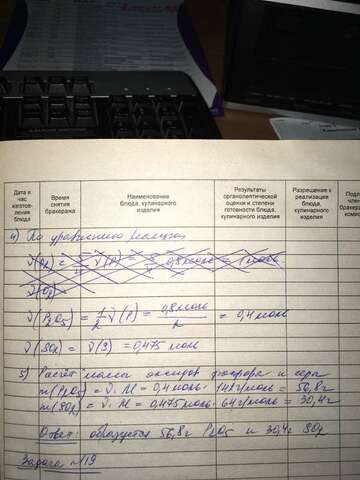 Дата и час изготов- ления блюда
Время снятия бракеража
Наименование блюда, кулинарного изделия
Результаты органолептической оценки и степени готовности блюда, кулинарного изделия
Разрешение к реализации блюда, кулинарного изделия
4) По уравнению реакции
ν(P₂O₅) = 1/2 ν(P) = 0,8моль/2 = 0,4моль
ν(SO₂) = ν(S) = 0,475 моль
5) Расчёт массы оксидов фосфора и серы
m(P₂O₅) = ν·M = 0,4моль·142г/моль = 56,8г
m(SO₂) = ν·M = 0,475моль·64г/моль = 30,4г
Ответ: образуется 56,8г P₂O₅ и 30,4г SO₂
Задача №19